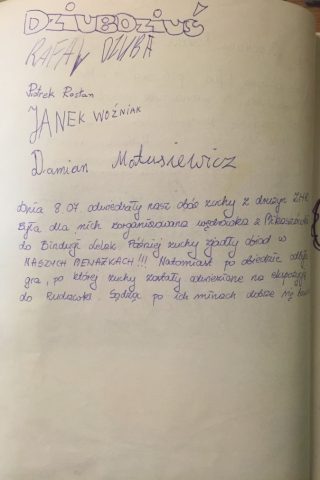 DZIUBDZIUŚ
RAFAŁ DZIUBA
Piotrek Rostan
JANEK WOŹNIAK
Damian Matusiewicz
Dnia 8.07 odwiedzały nasz obóz zuchy z drużyn ZHR.
Była dla nich zorganizowana wędrówka z
do Bindugi Lelek. Później zuchy zjadły obiad w
NASZYCH MENAŻKACH!!! Natomiast po obiedzie
gra, po której zuchy zostały odwiezione na
do Rudawki. Sądząc po ich minach dobrze się